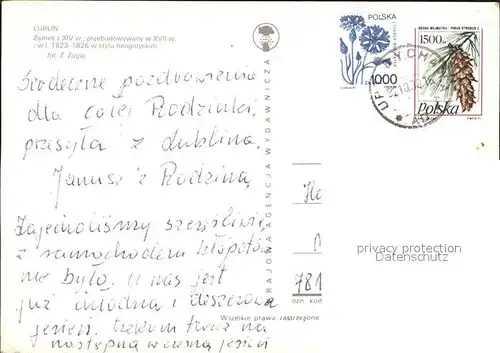 LUBLIN
Zamek z XIV w., przebudowywany w XVII w.
i w l. 1823-1826 w stylu neogotyckim
fot. Z. Żugaj
Serdeczne pozdrowienia
dla całej Rodzinki,
przesyła z Lublina,
Janusz z Rodziną,
Zajechaliśmy szczęśliwie
z samochodem kłopotów
nie było. U nas jest
już chłodna i deszczowa
jesień. teraz na
następną wczesną jesień
KRAJOWA AGENCJA WYDAWNICZA
POLSKA
1000
1500 zł
SOSNA WEJMUTKA PINUS STROBUS L.
Polska
781
ozn kod
Wszelkie prawa zastrzeżone
privacy protection
Datenschutz